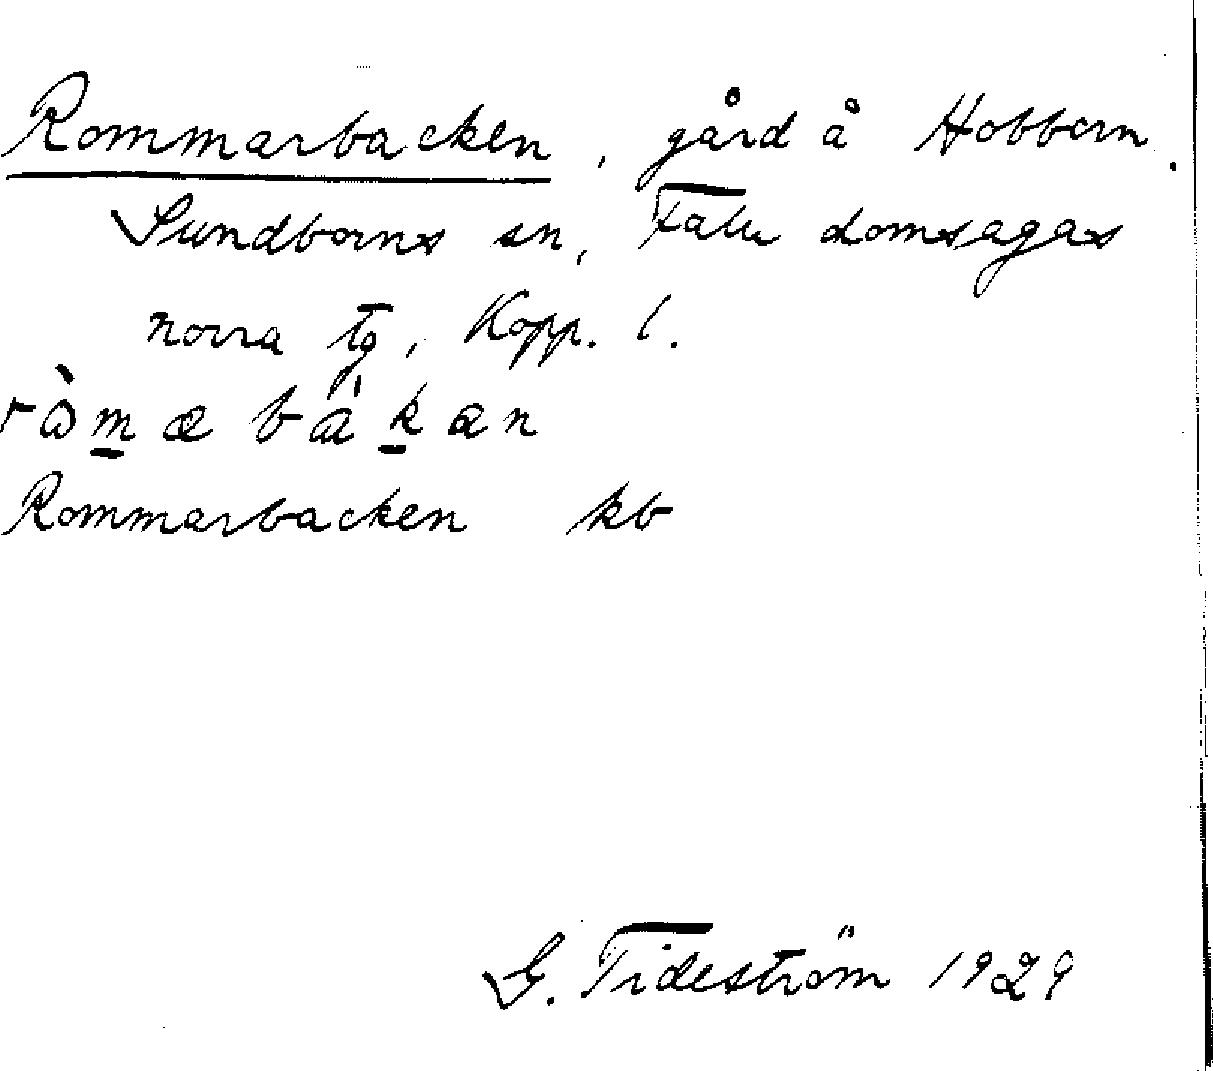 Rommarbacken, gård å Hobborn.
Sundborns sn, Falu domsagas
norra tg, Kopp. l.
ròm̲æ bák̲æn
Rommarbacken kb
G. Tideström 1929